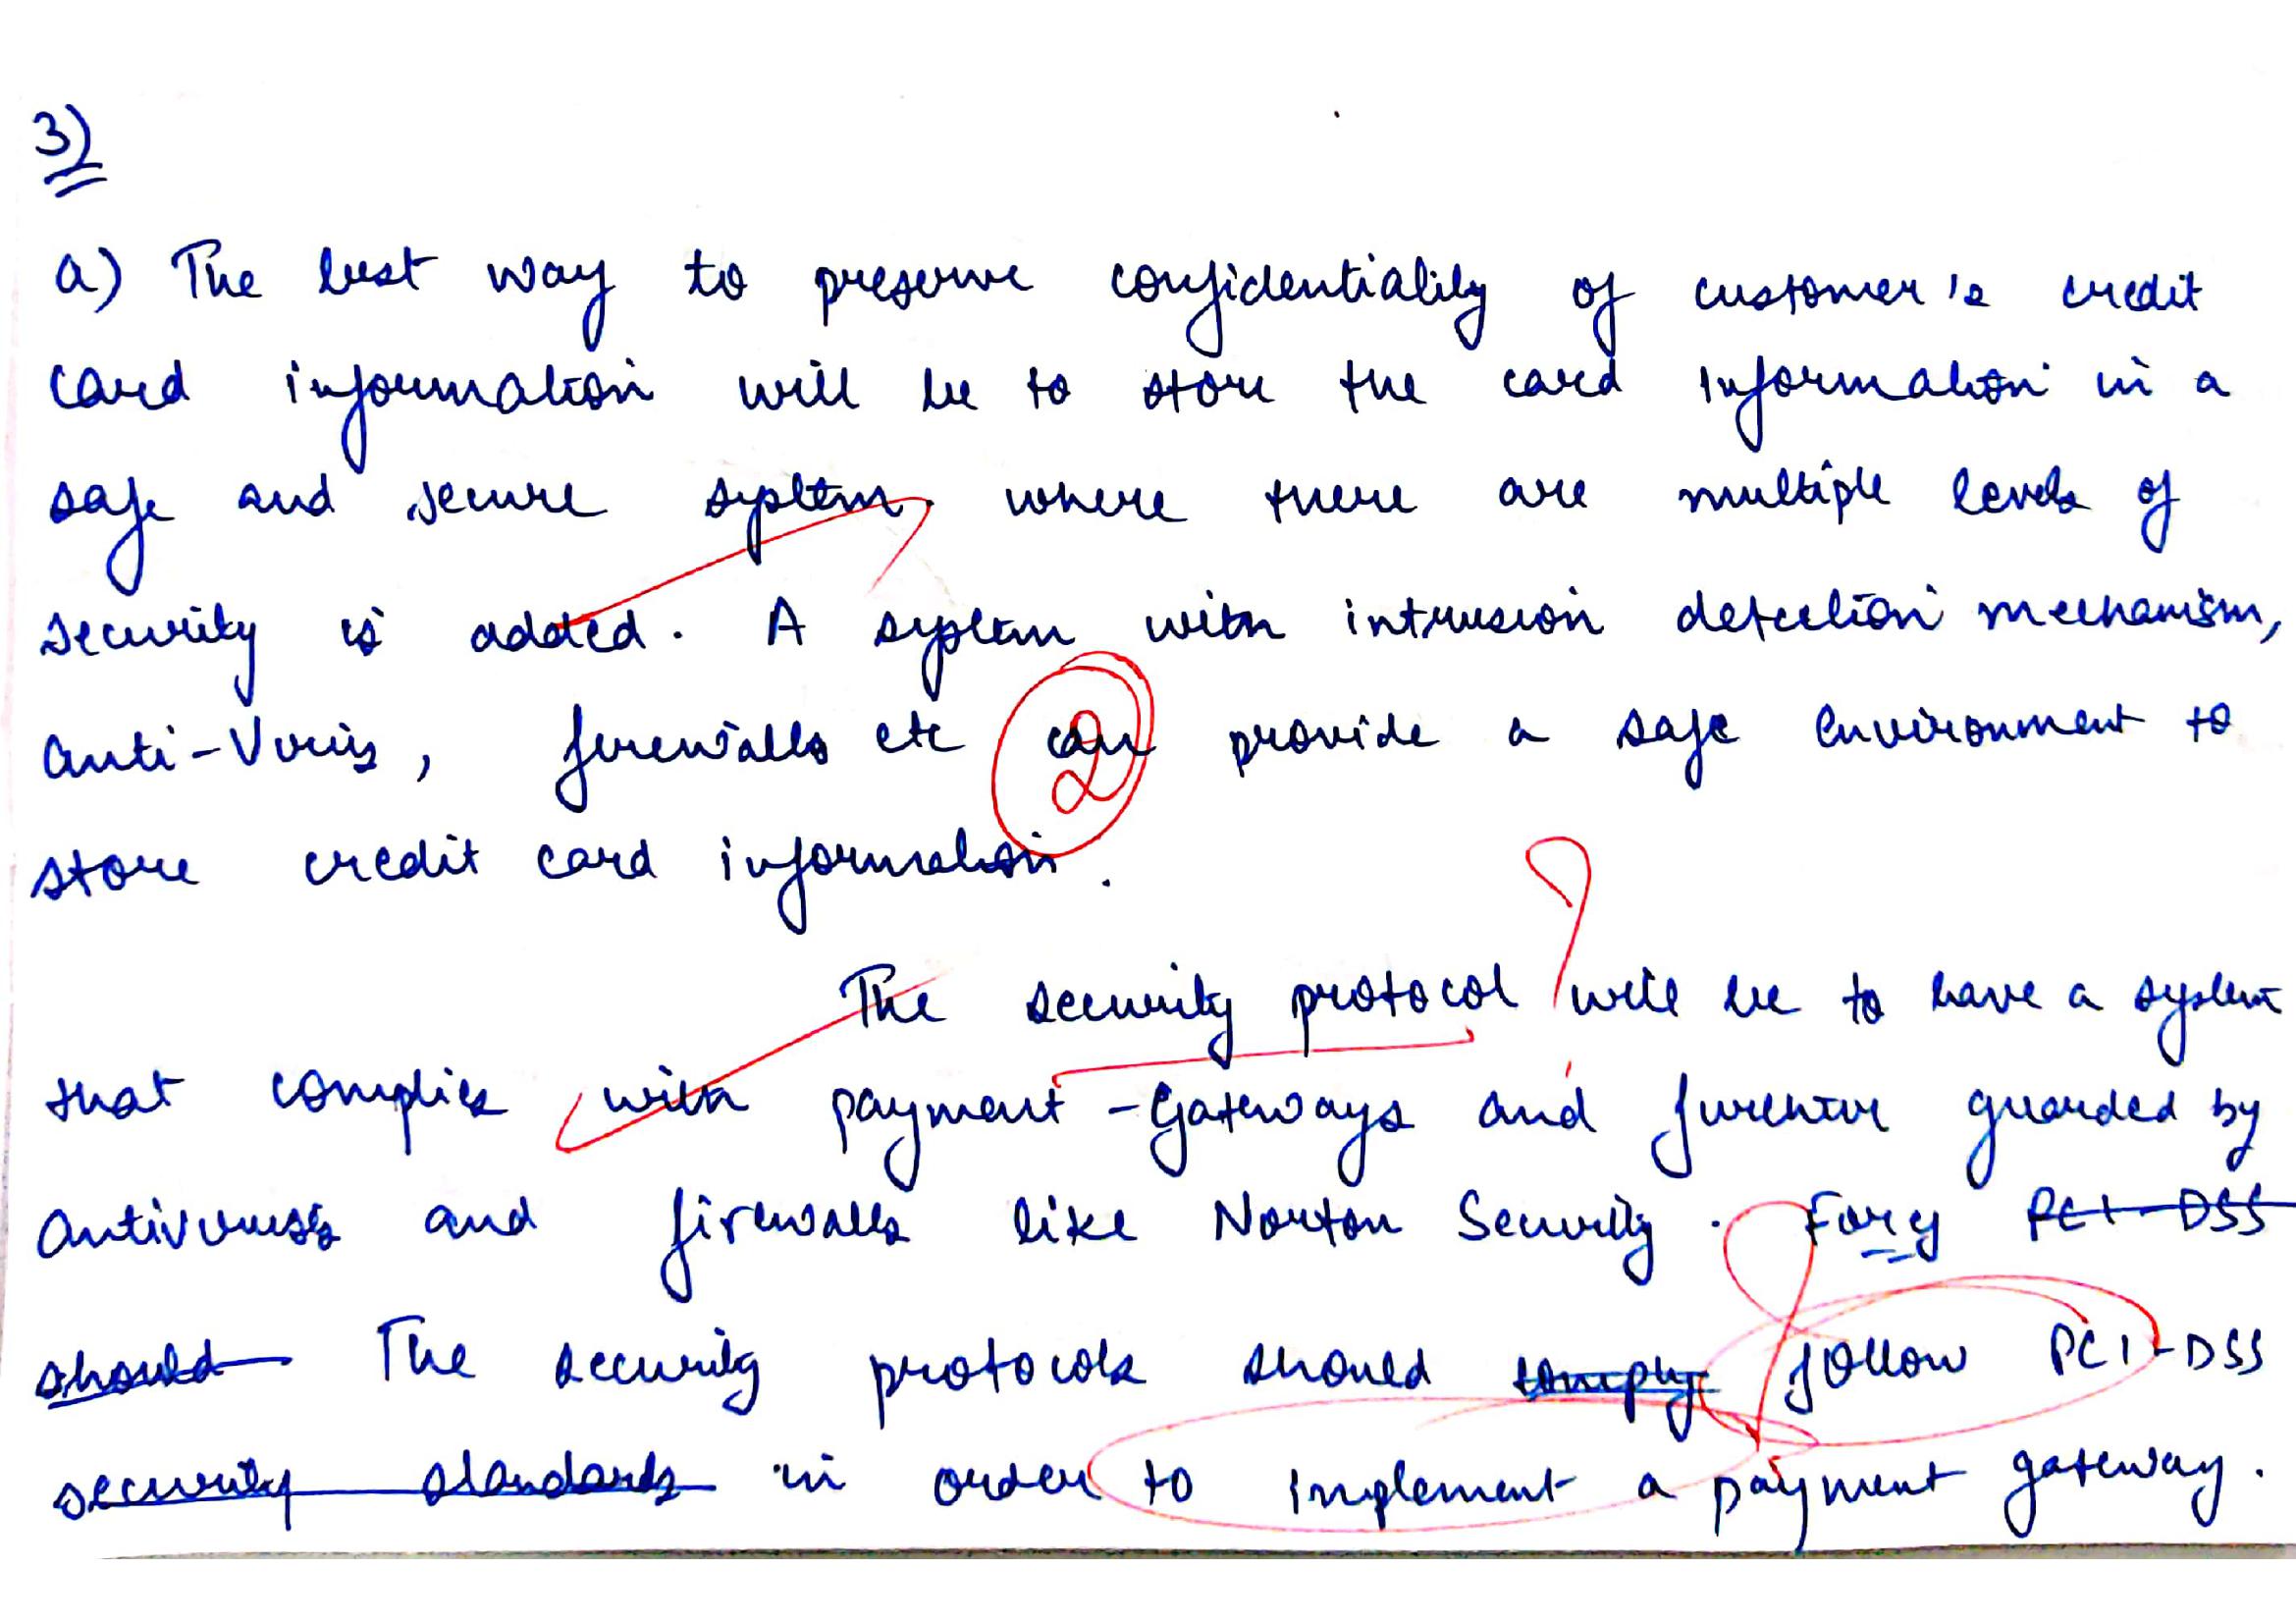 3)
a) The best way to preserve confidentiality of customer's credit
card information will be to store the card information in a
safe and secure system. where there are multiple levels of
security is added. A system with intrusion detection mechanism,
Anti-Virus, firewalls etc can provide a safe environment to
2
store credit card information.
The security protocol will be to have a system
that complies with payment-gateways and further guarded by
antiviruses and firewalls like Norton Security. PCI-DSS
should The security protocols should comply follow PCI-DSS
security standards in order to implement a payment gateway.